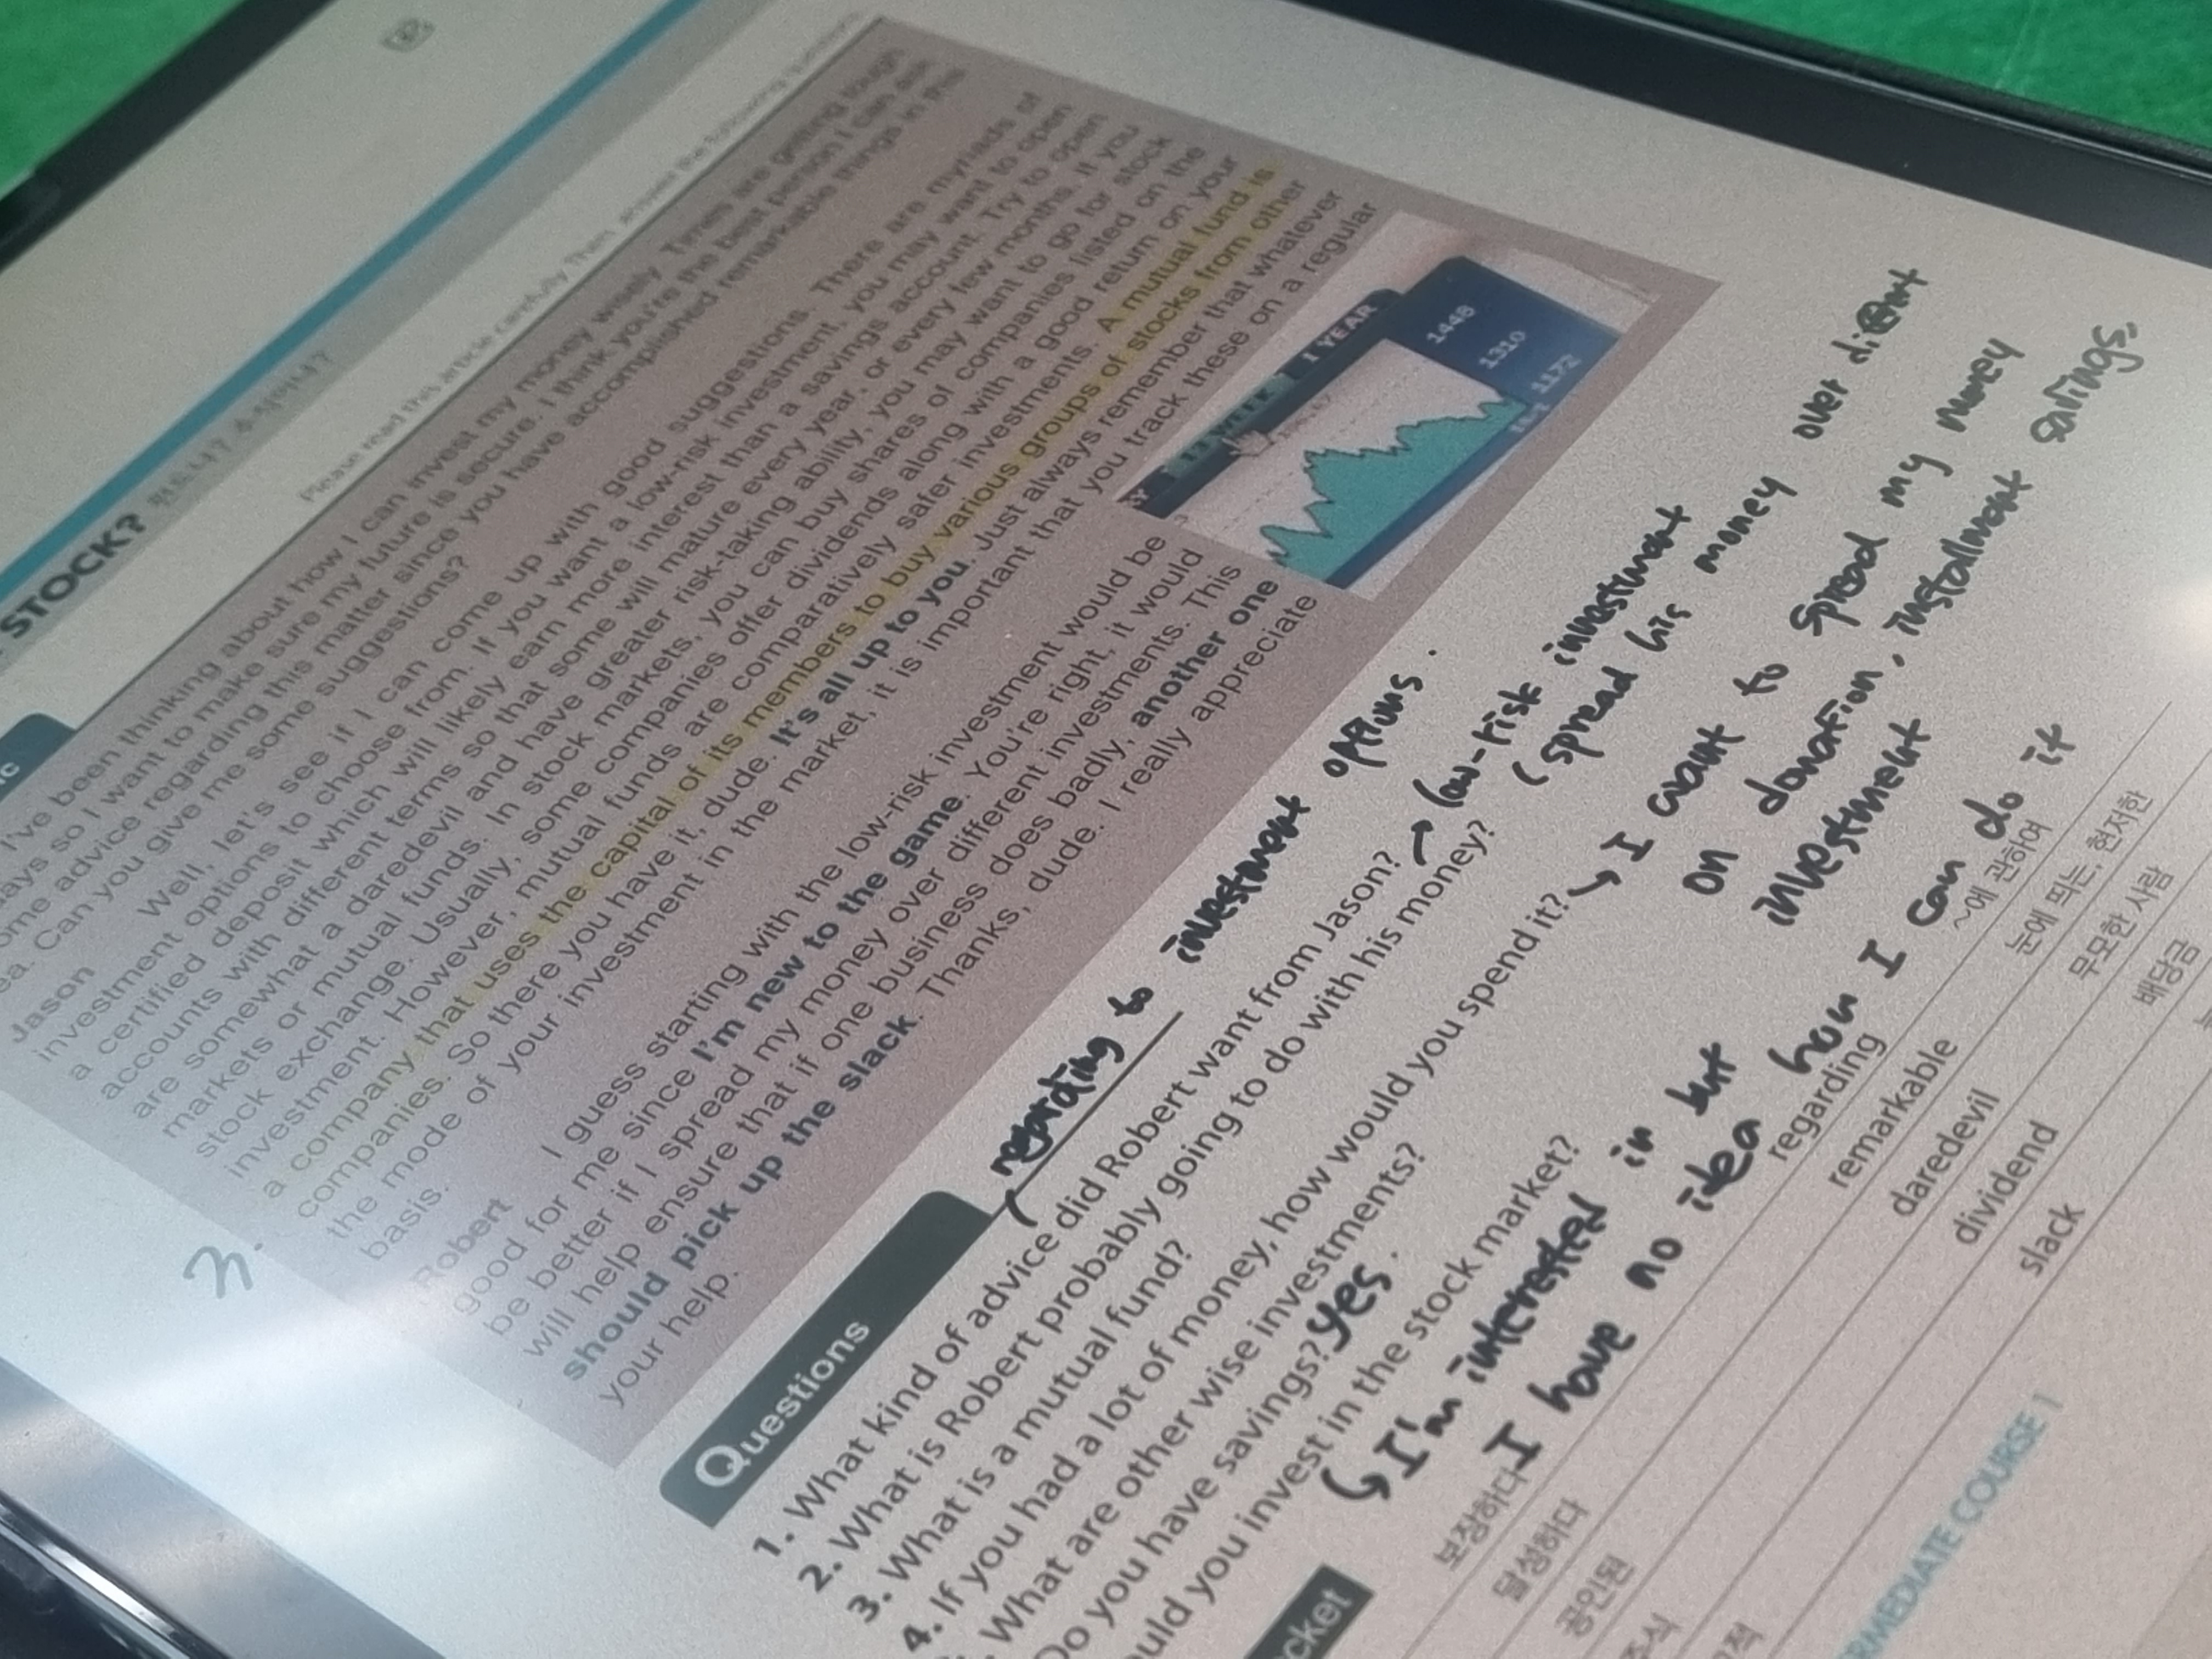 STOCK? 주식시장
Please read this article carefully. Then, answer the following questions.
I've been thinking about how I can invest my money wisely. Times are getting tough
days so I want to make sure my future is secure. I think you're the best person I can ask
some advice regarding this matter since you have accomplished remarkable things in this
Can you give me some suggestions?
Jason Well, let's see if I can come up with good suggestions. There are myriads of
investment options to choose from. If you want a low-risk investment, you may want to open
a certified deposit which will likely earn more interest than a savings account. Try to open
accounts with different terms so that some will mature every year, or every few months. If you
are somewhat a daredevil and have greater risk-taking ability, you may want to go for stock
markets or mutual funds. In stock markets, you can buy shares of companies listed on the
stock exchange. Usually, some companies offer dividends along with a good return on your
investment. However, mutual funds are comparatively safer investments. A mutual fund is
a company that uses the capital of its members to buy various groups of stocks from other
companies. So there you have it, dude. It's all up to you. Just always remember that whatever
the mode of your investment in the market, it is important that you track these on a regular
basis.
3.
1 YEAR
1448
1310
1172
Robert I guess starting with the low-risk investment would be
good for me since I'm new to the game. You're right, it would
be better if I spread my money over different investments. This
will help ensure that if one business does badly, another one
should pick up the slack. Thanks, dude. I really appreciate
your help.
Questions
( regarding to investment options.
1. What kind of advice did Robert want from Jason?
2. What is Robert probably going to do with his money?
→ low-risk investment
(spread his money over
3. What is a mutual fund?
4. If you had a lot of money, how would you spend it?
→ I want to spread my money
on donation, installment savings,
investment
What are other wise investments?
Do you have savings? yes.
ould you invest in the stock market?
→ I'm interested in but
I have no idea how I can do it
cket
보장하다
regarding
~에 관하여
달성하다
remarkable
눈에 띄는, 현저한
공인된
daredevil
무모한 사람
주식
dividend
배당금
slack
RMEDIATE COURSE 1